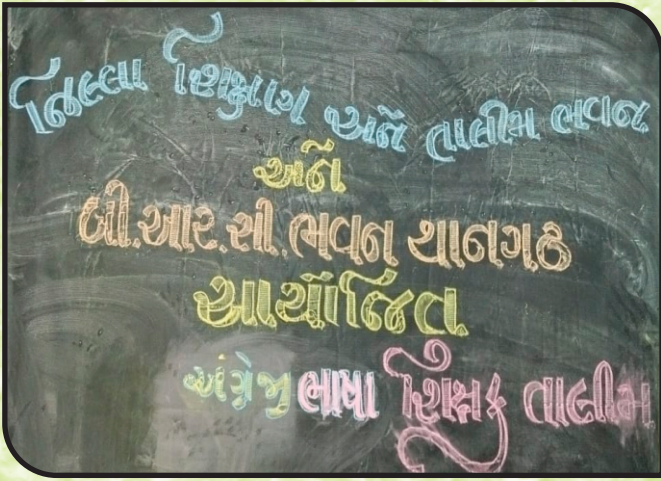 જિલ્લા શિક્ષણ અને તાલીમ ભવન
અને
બી.આર.સી. ભવન થાનગઢ
આયોજિત
અંગ્રેજી ભાષા શિક્ષક તાલીમ